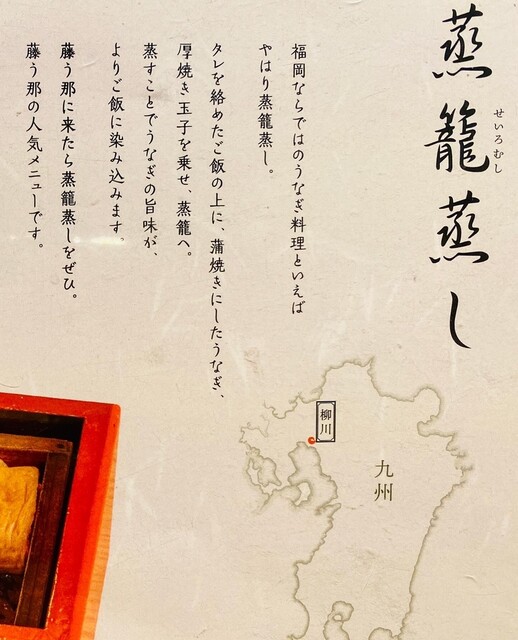 蒸籠蒸し
せいろむし
福岡ならではのうなぎ料理といえば
やはり蒸籠蒸し。
タレを絡めたご飯の上に、蒲焼きにしたうなぎ、
厚焼き玉子を乗せ、蒸籠へ。
蒸すことでうなぎの旨味が、
よりご飯に染み込みます。
藤う那に来たら蒸籠蒸しをぜひ。
藤う那の人気メニューです。
柳川
九州